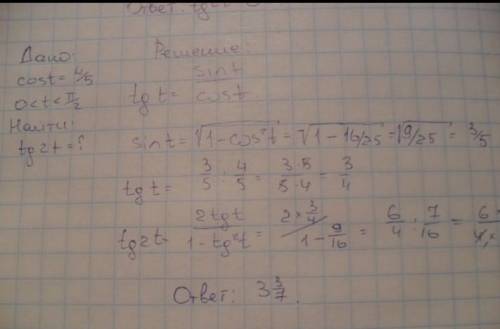 Ответ: tg
Дано:
cost = 4/5
0<t<π/2
Найти:
tg2t=?
Решение:
tg t = sint / cost
sin t = √1-cos²t = √1-16/25 = √9/25 = 3/5
tg t = 3/5 : 4/5 = 3·5/5·4 = 3/4
tg2t = 2tgt / 1-tg²t = 2×3/4 / 1-9/16 = 6/4 : 7/16 = 6
Ответ: 3 3/7.